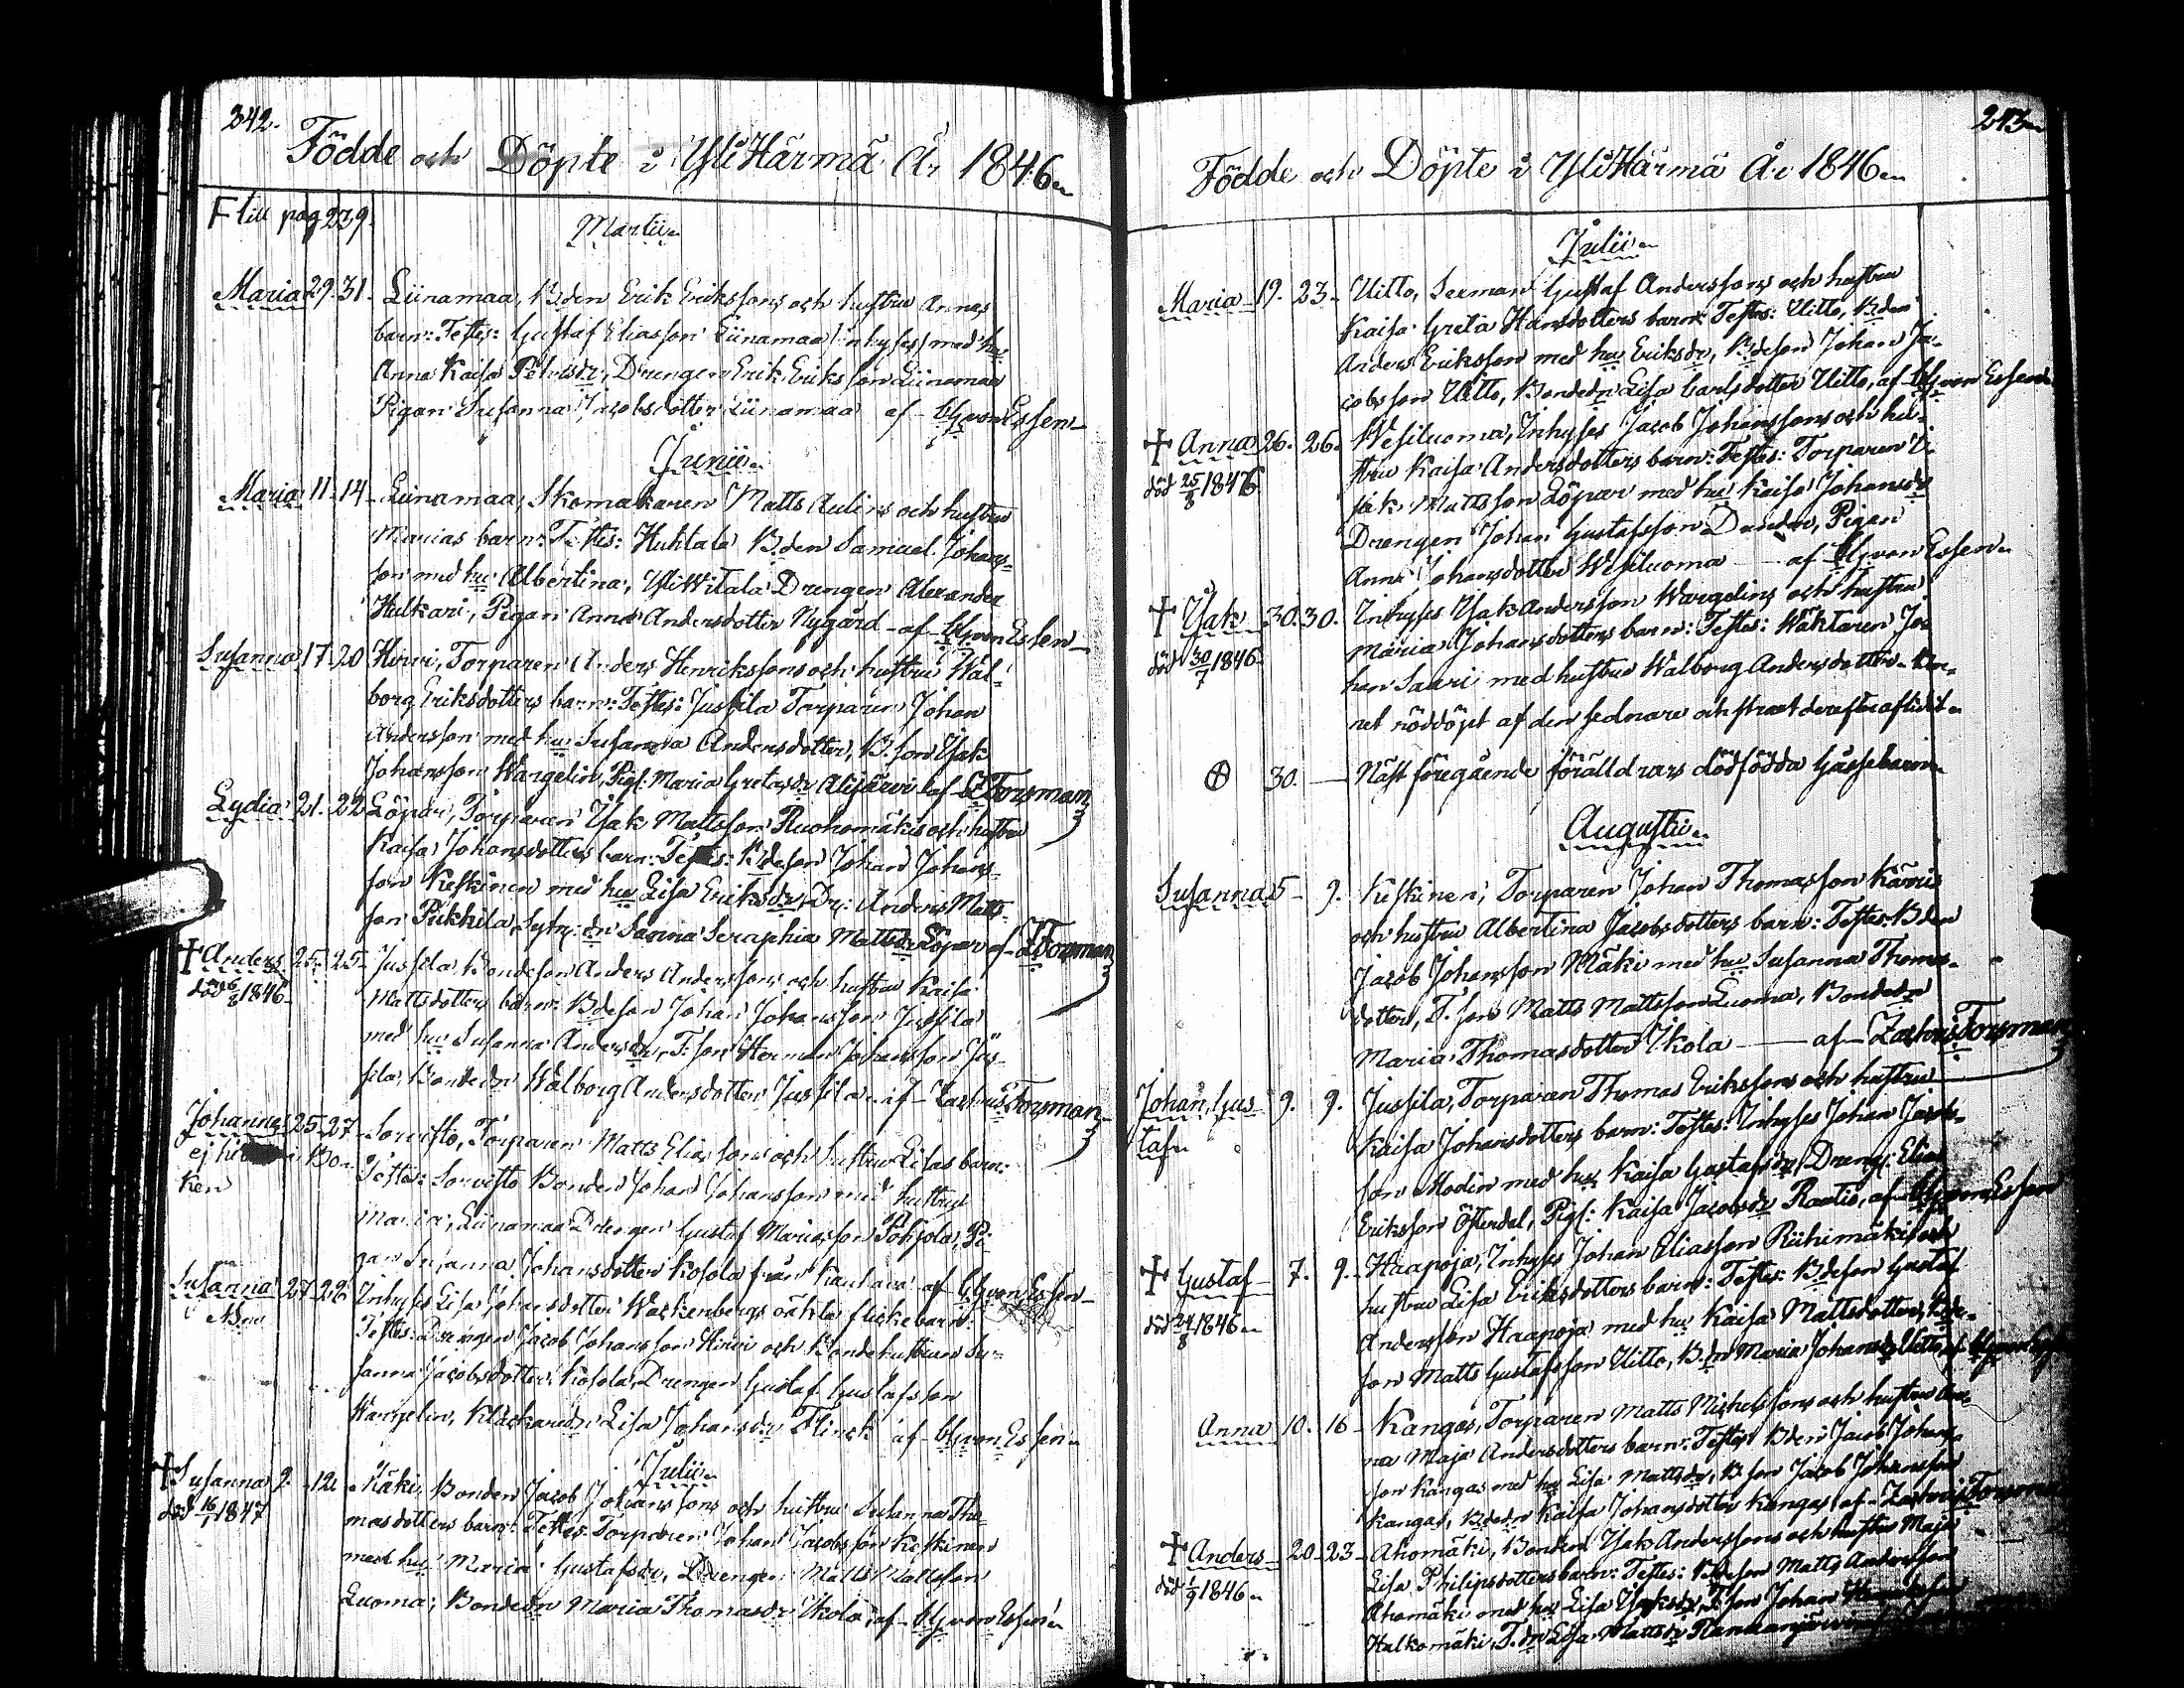 242.
Födde och Döpte i YliHärmä År 1846
F till pag 239.
Martii
Maria 29. 31. Liinamaa, B:den Erik Erikssons och hustru Annas
barn: Testes: Gustaf Eliasson Liinamaa Inhyses med hu
Anna Kaisa Petersdr, Drengen Erik Eriksson Liinamaa
Pigan Susanna Jacobsdotter Liinamaa af CG von Essen
Junii
Maria 11. 14. Liinamaa, Skomakaren Matts Aulins och hustru
Marias barn: Testes: Huhtala B:den Samuel Johans-
son med hu Albertina, YliWitala Drengen Alexander
Hulkari, Pigan Anna Andersdotter Nygård af CG von Essen
Susanna 17. 20 Hirvi, Torparen Anders Henrikssons och hustru Wal-
borg Eriksdotters barn: Testes: Jussila Torparen Johan
Andersson med hu Susanna Andersdotter, B.son Isak
Johansson Wargelin, Pig: Maria Gretasdr Alijärvi af Z Forsman
Lydia 21. 22 Löpar, Torparen Isak Mattsson Ruohomäkis och hustru
Kaisa Johansdotters barn: Testes: B:deson Johan Johans-
son Keskinen med hu Lisa Eriksdr, Dr: Anders Matts-
son Pukkila, Sytn: dr Sanna Seraphia Mattsdr Löpar af Z Forsman
† Anders 25. 25. Jussila, Bondeson Anders Anderssons och hustru Kaisa
död 6/8 1846. Mattsdotters barn: B:deson Johan Johansson Jussila
med hu Susanna Andersdr, T.son Herman Johansson Jus-
sila, Bondedr Walborg Andersdotter Jussila af Zachris Forsman
Johannes 25. 27 Sorvisto, Torparen Matts Eliassons och hustru Lisas barn:
ej i Bo- Testes: Sorvisto Bonden Johan Johansson med hustru
ken Maria, Liinamaa Drengen Gustaf Mariasson Pohjola, Pi-
gan Susanna Johansdotter Kosola från Kauhava af CG von Essen
Susanna 27. 28 Inhyses Lisa Johansdotter Wackenbergs oäkta flickebarn:
Testes: Drengen Jacob Johansson Hirvi och Bondehustrun Su-
sanna Jacobsdotter Kosola, Drengen Gustaf Gustafsson
Wargelin, Klåckaredr Lisa Johansdr Flinck af CG von Essen
Julii
† Susanna 9. 12. Mäki, Bonden Jacob Johanssons och hustru Susanna Tho-
död 16/1 1847 masdotters barn: Testes: Torparen Johan Jacobsson Keskinen
med hu Maria Gustafsdr, Drengen Matts Mattsson
Luoma, Bondedr Maria Thomasdr Ikola af CG von Essen
243
Födde och Döpte i YliHärmä År 1846
Julii
Maria 19. 23. Uitto, Seeman Gustaf Anderssons och hustru
Kaisa Greta Hansdotters barn: Testes: Uitto, B:den
Anders Eriksson med hu Eriksdr, B:deson Johan Ja-
cobsson Uitto, Bondedr Lisa Carlsdotter Uitto, af CG von Essen
† Anna 26. 26. Wesiluoma, Inhyses Jacob Johanssons och hu-
död 25/8 1846 stru Kaisa Andersdotters barn: Testes: Torparen I-
sak Mattsson Löpar med hu Kaisa Johansdr
Drengen Johan Gustafsson Dandar, Pigan
Anna Johansdotter Wesiluoma af CG von Essen
† Isak 30. 30. Inhyses Isak Andersson Wargelins och hustru
död 30/7 1846 Maria Johansdotters barn: Testes: Wäktaren Jo-
han Saari med hustru Walborg Andersdotter. Bar-
net nöddöpt af den sednare och straxt derefter aflidit
⊗ 30. — Näst föregående förälldrars dödfödda Gåssebarn
Augusti
Susanna 5. 9. Keskinen, Torparen Johan Thomasson Käris
och hustru Albertina Jacobsdotters barn: Testes: B:den
Jacob Johansson Mäki med hu Susanna Thomas-
dotter, T.son Matts Mattsson Luoma, Bondedr
Maria Thomasdotter Ikola af Zachris Forsman
Johan Gus- 9. 9. Jussila, Torparen Thomas Erikssons och hustru
taf Kaisa Johansdotters barn: Testes: Inhyses Johan Jacobs-
son Modin med hu Kaisa Gustafsdr, Dreng: Elias
Eriksson Österdal, Pig: Kaisa Jacobsdr Rautio, af CG von Essen
† Gustaf 7. 9. Haapoja, Inhyses Johan Eliasson Riihimäkis och
död 24/8 1846 hustru Lisa Eriksdotters barn: Testes: B:deson Gustaf
Andersson Haapoja med hu Kaisa Mattsdotter, B:de-
son Matts Gustafsson Uitto, B.dr Maria Johansdr Uitto af CG von Essen
Anna 10. 16. Kangas, Torparen Matts Michelssons och hustru An-
na Maja Andersdotters barn: Testes: B:den Jacob Johans-
son Kangas med hu Lisa Mattsdr, B.son Jacob Johansson
Kangas, B:dedr Kaisa Johansdotter Kangas af Zachris Forsman
† Anders 20. 23. Ahomäki, Bonden Isak Anderssons och hustru Maja
död 1/9 1846 Lisa Philipsdotters barn: Testes: B:deson Matts Andersson
Ahomäki med hu Lisa Isaksdr, T.son Johan
Halkomäki, T.dr Lisa Mattsdr